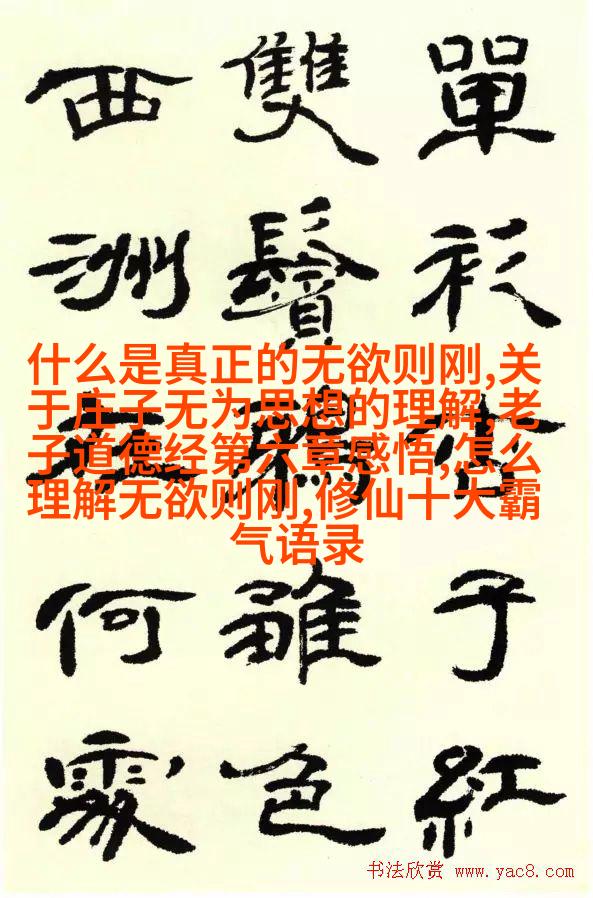 單衫杏子紅
雙鬢鴉雛色
西洲在何處
什么是真正的无欲则刚,关
于庄子无为思想的理解,老
子道德经第六章感悟,怎么
理解无欲则刚,修仙十大霸
气语录
书法欣赏 www.yac8.com